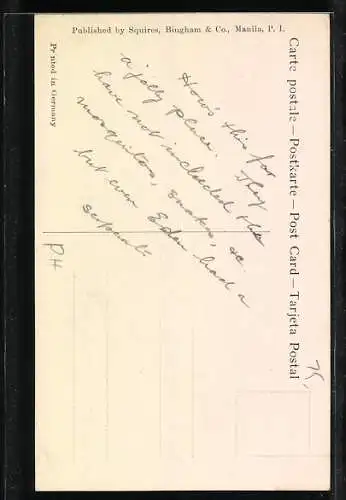 Published by Squires, Bingham & Co., Manila, P. I.
Printed in Germany
Carte postale — Postkarte — Post Card — Tarjeta Postal
How's this for
a jolly place. They
have not included the
mosquitos, snakes, &c
but even Eden had a
serpent
PH
75,